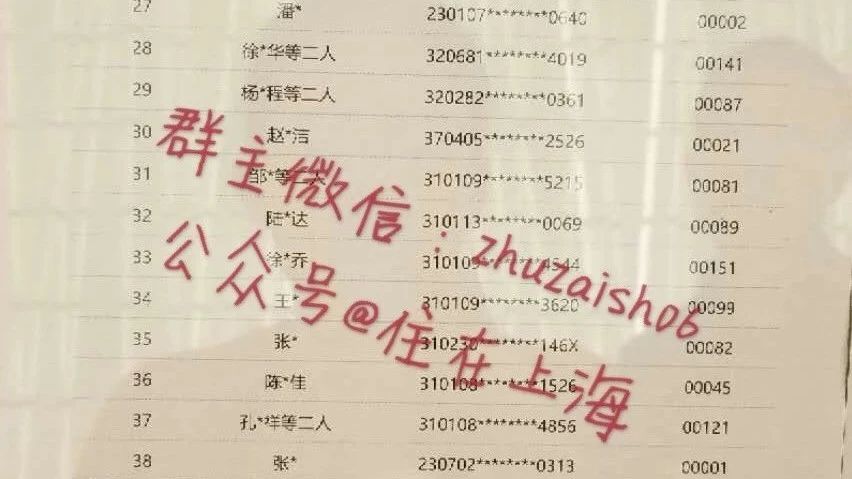 27 潘* 230107********0640 00002
28 徐*华等二人 320681********4019 00141
29 杨*程等二人 320282********0361 00087
30 赵*洁 370405********2526 00021
31 邹*等二人 310109********5215 00081
32 陆*达 310113********0069 00089
33 徐*乔 310109********4544 00151
34 王* 310109********3620 00099
35 张* 310230********146X 00082
36 陈*佳 310108********1526 00045
37 孔*祥等二人 310108********4856 00121
38 张* 230702********0313 00001
群主微信:zhuzaish06
公众号@住在上海